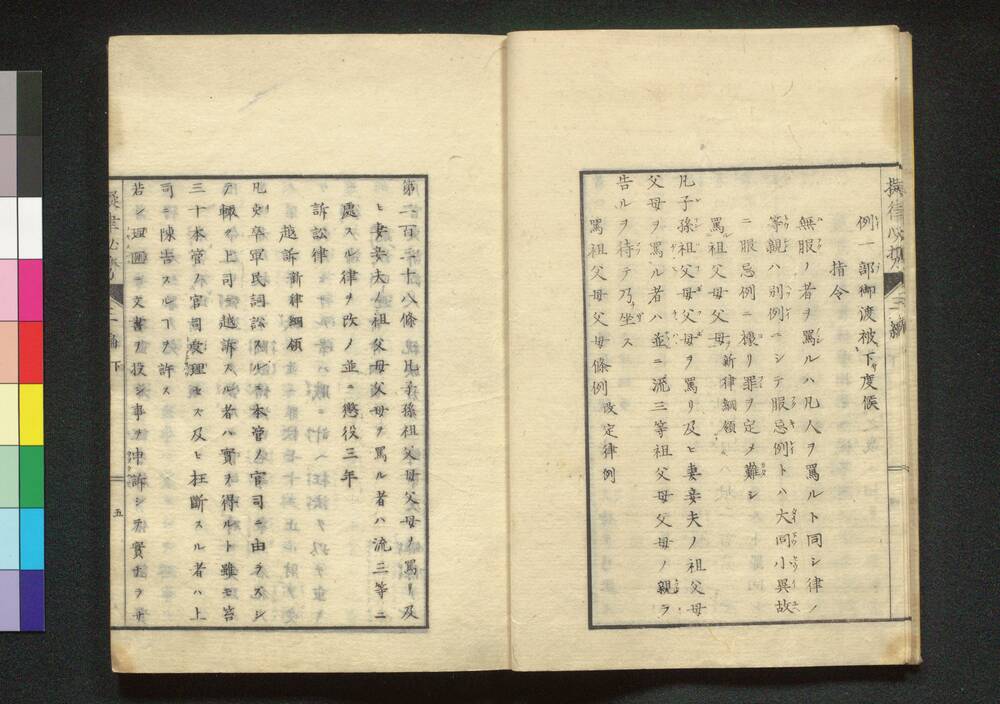 例一部御渡被下度候
指令
無服ノ者ヲ罵ルハ凡人ヲ罵ルト同シ律ノ
等親ハ別例ニシテ服忌例トハ大同小異故
ニ服忌例ニ據リ罪ヲ定メ難シ
罵祖父母父母 新律綱領
凡子孫祖父母父母ヲ罵リ及ヒ妻妾夫ノ祖父母
父母ヲ罵ル者ハ並ニ流三等祖父母父母ノ親ラ
告ルヲ待テ乃坐ス
罵祖父母父母條例 改定律例
三編
第二百二十八條凡子孫祖父母父母ヲ罵リ及
ヒ妻妾夫ノ祖父母父母ヲ罵ル者ハ流三等ニ
處スル律ヲ改メ並ニ懲役三年
訴訟律
越訴 新律綱領
凡史卒軍民詞訟スルニ本管ノ官司ニ由ラスシ
テ輙ク上司ニ越訴スル者ハ實ヲ得ルト雖モ笞
三十本管ノ官司受理セス及ヒ枉斷スル者ハ上
司ニ陳告スルヿヲ許ス
若シ理匭ニ文書ヲ投シ事ヲ申訴シテ實ナラサ
下
五